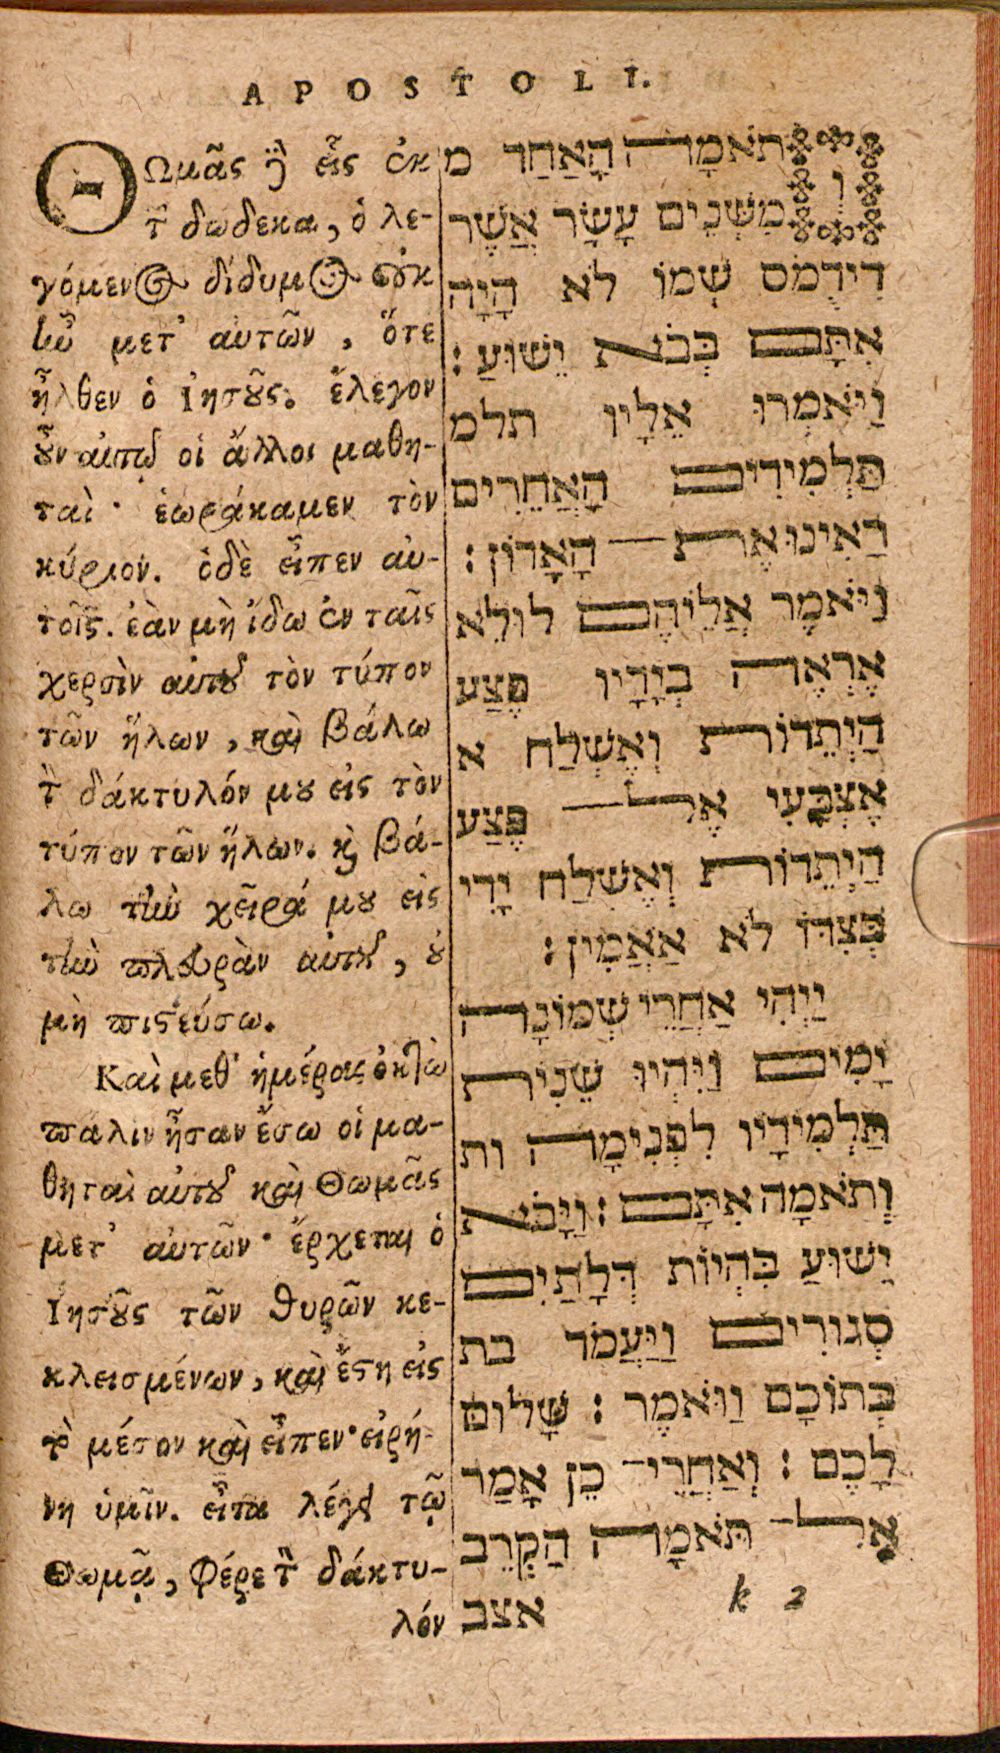 APOSTOLI.
ΘΩμᾶς ἢ εἷς ἐκ
τῶ δώδεκα, ὁ λε-
γόμενος δίδυμος οὐκ
ἦν μετ' αὐτῶν, ὅτε
ἦλθεν ὁ Ἰησοῦς. ἔλεγον
οὖν αὐτῷ οἱ ἄλλοι μαθη-
ταὶ· ἑωράκαμεν τὸν
κύριον. ὁδὲ εἶπεν αὐ-
τοῖς. ἐὰν μὴ ἴδω ἐν ταῖς
χερσὶν αὐτοῦ τὸν τύπον
τῶν ἥλων, καὶ βάλω
τὸ δάκτυλόν μου εἰς τὸν
τύπον τῶν ἥλων. καὶ βά-
λω τὴν χεῖρά μου εἰς
τὴν πλευρὰν αὐτοῦ, οὐ
μὴ πιστεύσω.
Καὶ μεθ' ἡμέρας ὀκτὼ
πάλιν ἦσαν ἔσω οἱ μα-
θηταὶ αὐτοῦ καὶ Θωμᾶς
μετ' αὐτῶν· ἔρχεται ὁ
Ἰησοῦς τῶν θυρῶν κε-
κλεισμένων, καὶ ἔστη εἰς
τὸ μέσον καὶ εἶπεν· εἰρή-
νη ὑμῖν. εἶτα λέγει τῷ
Θωμᾷ, Φέρε τὸ δάκτυ-
λόν
וְתֹאמָה הָאַחַד מ
מִשְּׁנֵים עָשָׂר אֲשֶׁר
דִידְמֹס שְׁמוֹ לֹא הָיָה
אִתָּם בְּבֹא יֵשׁוּעַ:
וַיֹּאמְרוּ אֵלָיו תלמ
תַּלְמִידִים הָאֲחֵרִים
רָאִינוּ אֶת הָאָדוֹן:
וַיֹּאמֶר אֲלֵיהֶם לוּלֵא
אֶרְאֶה בְיָדָיו פֶּצַע
הַיְתֵדוֹת וְאֶשְׁלַח א
אֶצְבָּעִי אֶל פֶּצַע
הַיְתֵדוֹת וְאֶשְׁלַח יָדִי
בְּצִדּוֹ לֹא אַאֲמִין:
וַיְהִי אַחֲרֵי שְׁמוֹנָה
יָמִים וַיִּהְיוּ שֵׁנִית
תַּלְמִידָיו לִפְנִימָה ות
וְתֹאמָה אִתָּם: וַיָּבֹא
יֵשׁוּעַ בִּהְיוֹת דְּלָתַיִם
סְגוּרִים וַיַּעֲמֹד בת
בְּתוֹכָם וַיּאֹמֶר: שָׁלוֹם
לָכֶם: וְאַחֲרֵי־ כֵן אָמַר
אֶל־ תֹּאמָה הַקְרֵב
אצב
k 2